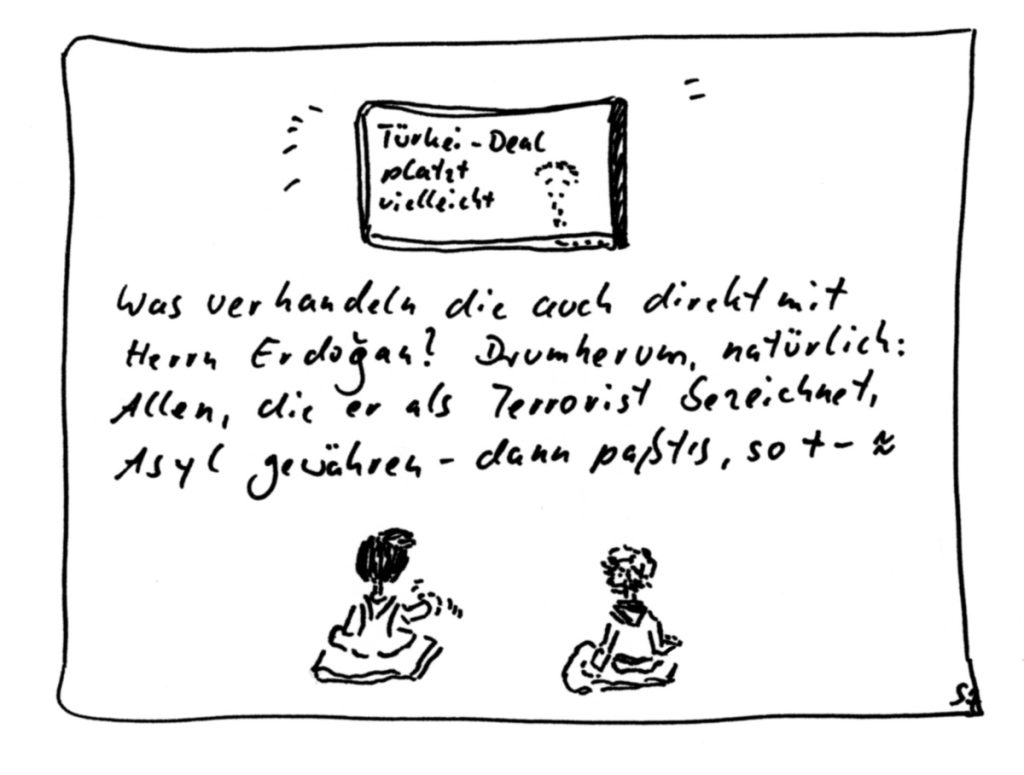 Türkei - Deal
platzt
vielleicht
Was verhandeln die auch direkt mit
Herrn Erdoğan? Drumherum, natürlich:
Allen, die er als Terrorist bezeichnet,
Asyl gewähren - dann paßt's, so + - ≈